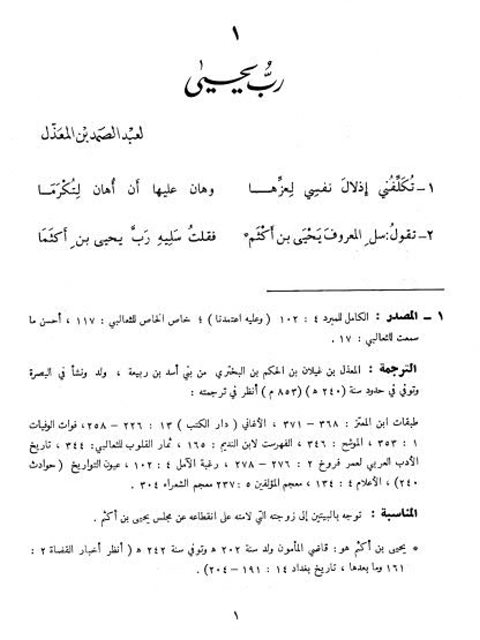 ١
ربُّ يحيىٰ
لعبد الصمد بن المعذّل
١ – تُكَلِّفُني إذلالَ نفسي لِعزِّهـا وهان عليها أن أُهان لِتُكْرَمَـا
٢ – تقولُ: سلِ المعروفَ يَحْيَى بن أَكْثَم* فقلتُ سَلِيهِ رَبَّ يحيى بنِ أَكثَمَا
١ – المصدر : الكامل للمبرد ٤ : ١٠٢ ( وعليه اعتمدنا ) ؛ خاص الخاص للثعالبي : ١١٧ ، أحسن ما
سمعت للثعالبي : ١٧ .
الترجمة : المعذل بن غيلان بن الحكم بن البختري من بني أسد بن ربيعة ، ولد ونشأ في البصرة
وتوفي في حدود سنة (٢٤٠ ه‍ ) (٨٥٣ م ) أنظر في ترجمته :
طبقات ابن المعتز : ٣٦٨ – ٣٧١ ، الأغاني ( دار الكتب ) ١٣ : ٢٢٦ – ٢٥٨، فوات الوفيات
١ : ٣٥٣ ، الموشح : ٣٤٦ ، الفهرست لابن النديم : ١٦٥ ، ثمار القلوب للثعالبي: ٣٤٤ ، تاريخ
الأدب العربي لعمر فروخ ٢ : ٢٧٦ – ٢٧٨ ، رغبة الآمل ٤ : ١٠٢ ، عيون التواريخ ( حوادث
٢٤٠) ، الأعلام ٤ : ١٣٤ ، معجم المؤلفين ٥ : ٢٣٧ معجم الشعراء ٣٠٤ .
المناسبة : توجه بالبيتين إلى زوجته التي لامته على انقطاعه عن مجلس يحيى بن أكثم .
* يحيى بن أكثم هو : قاضي المأمون ولد سنة ٢٠٢ ه‍ وتوفي سنة ٢٤٢ ه‍ ( أنظر أخبار القضاة ٢ :
١٦١ وما بعدها ، تاريخ بغداد ١٤ : ١٩١ – ٢٠٤) .
١